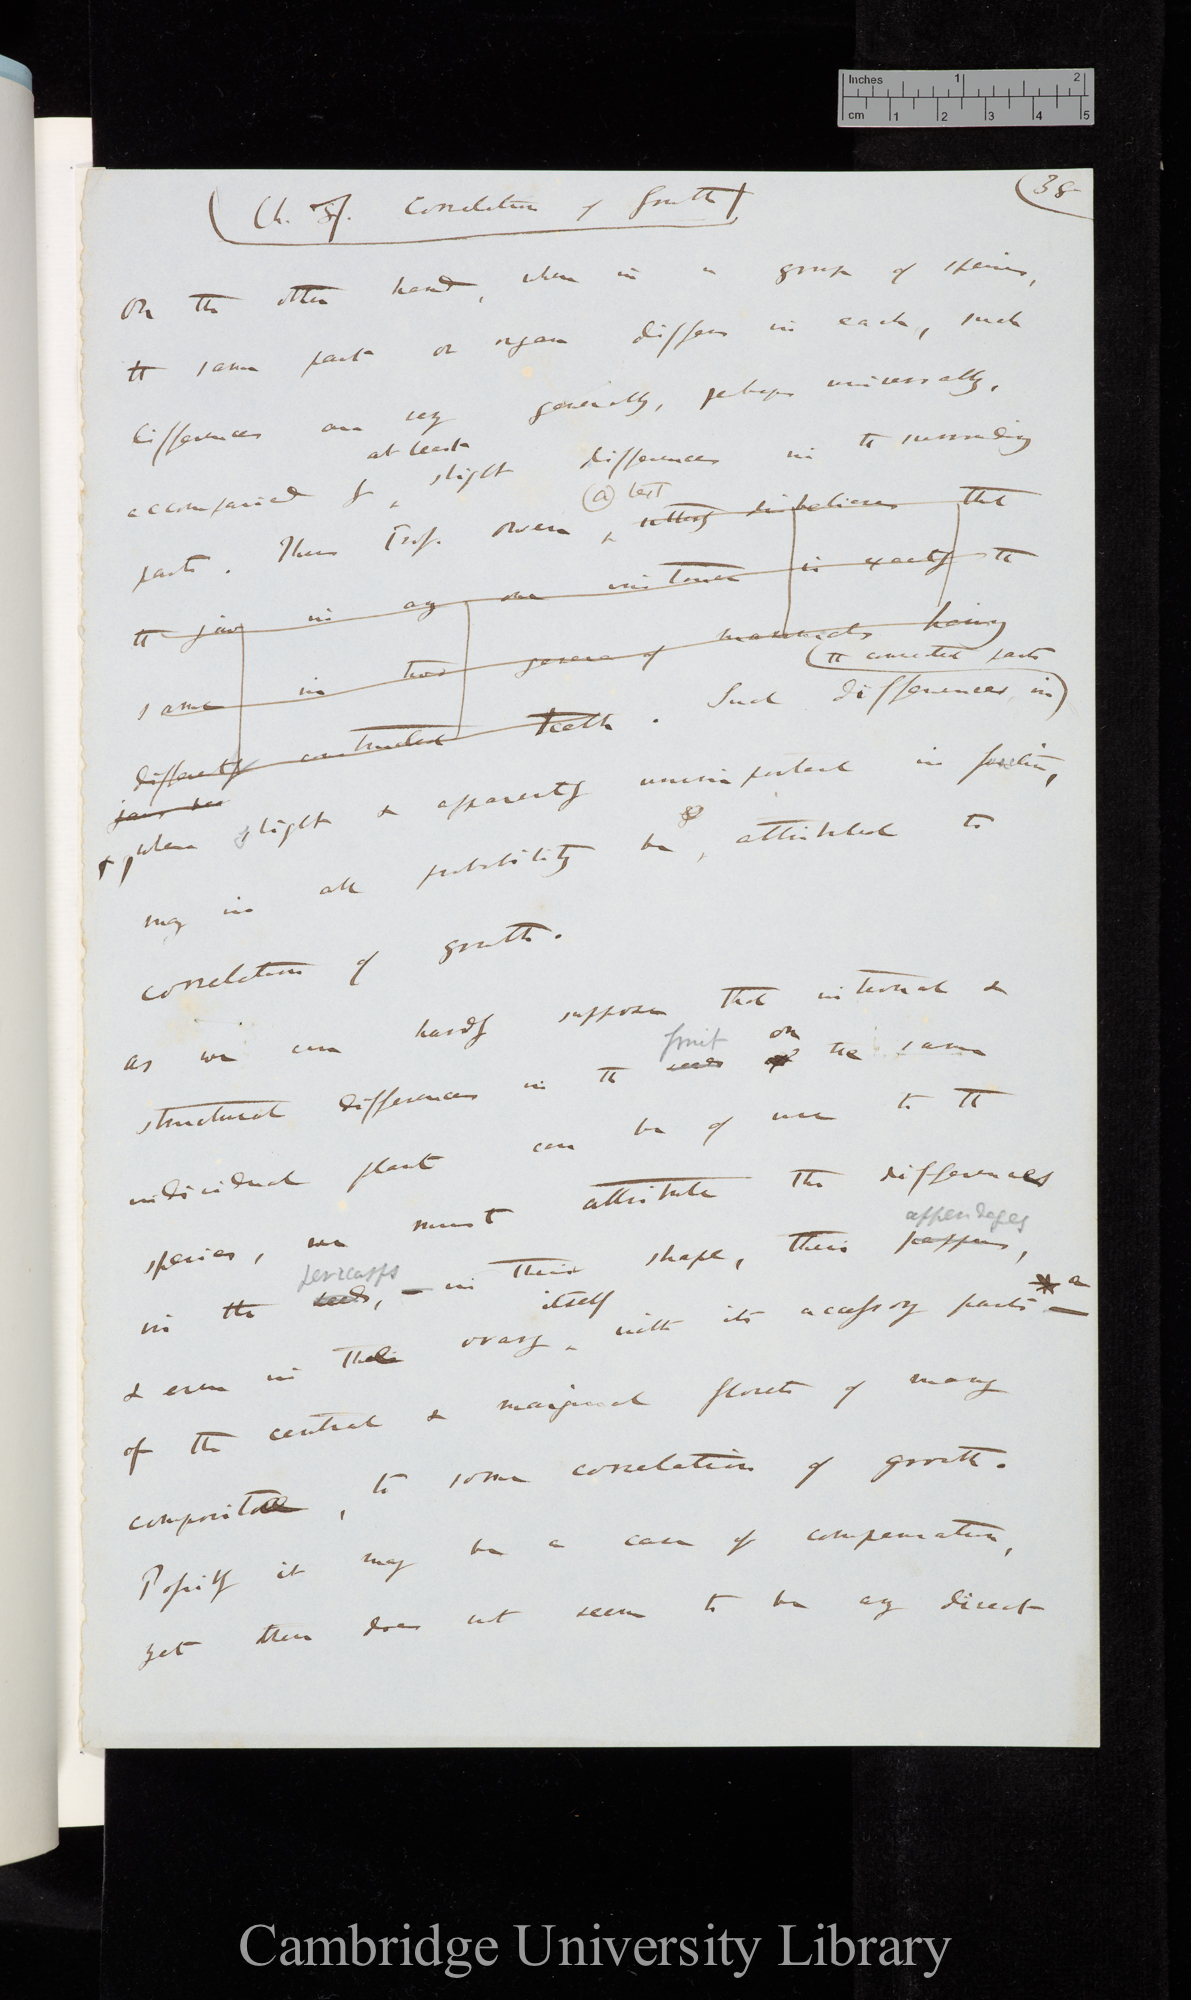 Inches 1 2
cm 1 2 3 4 5
Ch. 7. Correlation of Growth
38
On the other hand, when in a group of species,
tt same part or organ differs in each, such
differences are very generally, perhaps universally,
at least
accompanied by slight differences in tt surrounding
(a) text
parts. Thus Prof. Owen, utterly disbelieves that
tt jaw in any one instance is exactly tt
same in two genera of mammals having
differently constructed teeth. Such differences in
tt connected parts
when slight & apparently unimportant in function,
may in all probability be, attributed to
correlation of growth.
As we can hardly suppose that internal &
fruit on
structural differences in tt seeds of the same
individual plant can be of use to tt
species, we must attribute the differences
pericarps appendages
in the seeds, – in their shape, their pappus,
itself
& even in the ovary, with its accessory parts –
of the central & marginal florets of many
compositae, to some correlation of growth.
Possibly it may be a case of compensation,
yet there does not seem to be any direct
Cambridge University Library